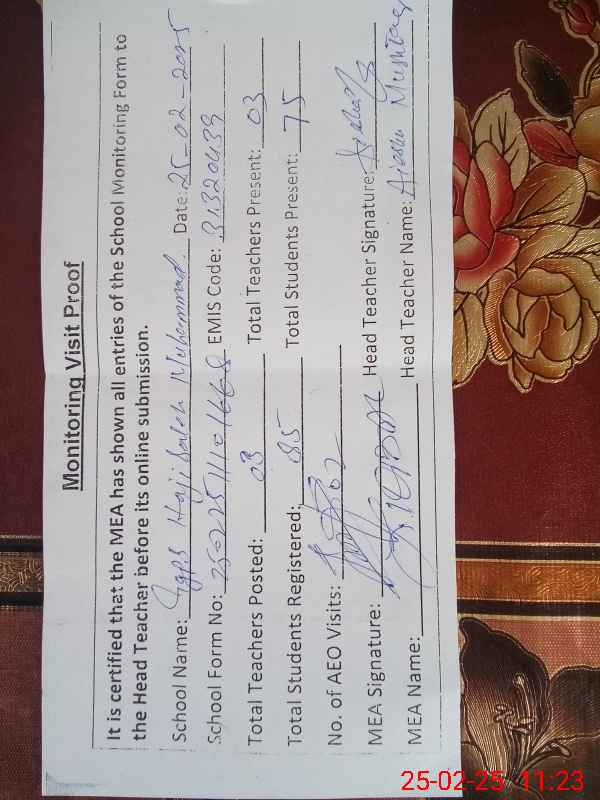 Monitoring Visit Proof
It is certified that the MEA has shown all entries of the School Monitoring Form to
the Head Teacher before its online submission.
School Name: GGPS Hajji Saleh Muhammad. Date: 25-02-2025
School Form No: EMIS Code: 31320439
Total Teachers Posted: 03 Total Teachers Present: 03
Total Students Registered: 85 Total Students Present: 75
No. of AEO Visits: 02
MEA Signature: Head Teacher Signature:
MEA Name: Head Teacher Name: Aiesha Mushtaq
25-02-25 11:23